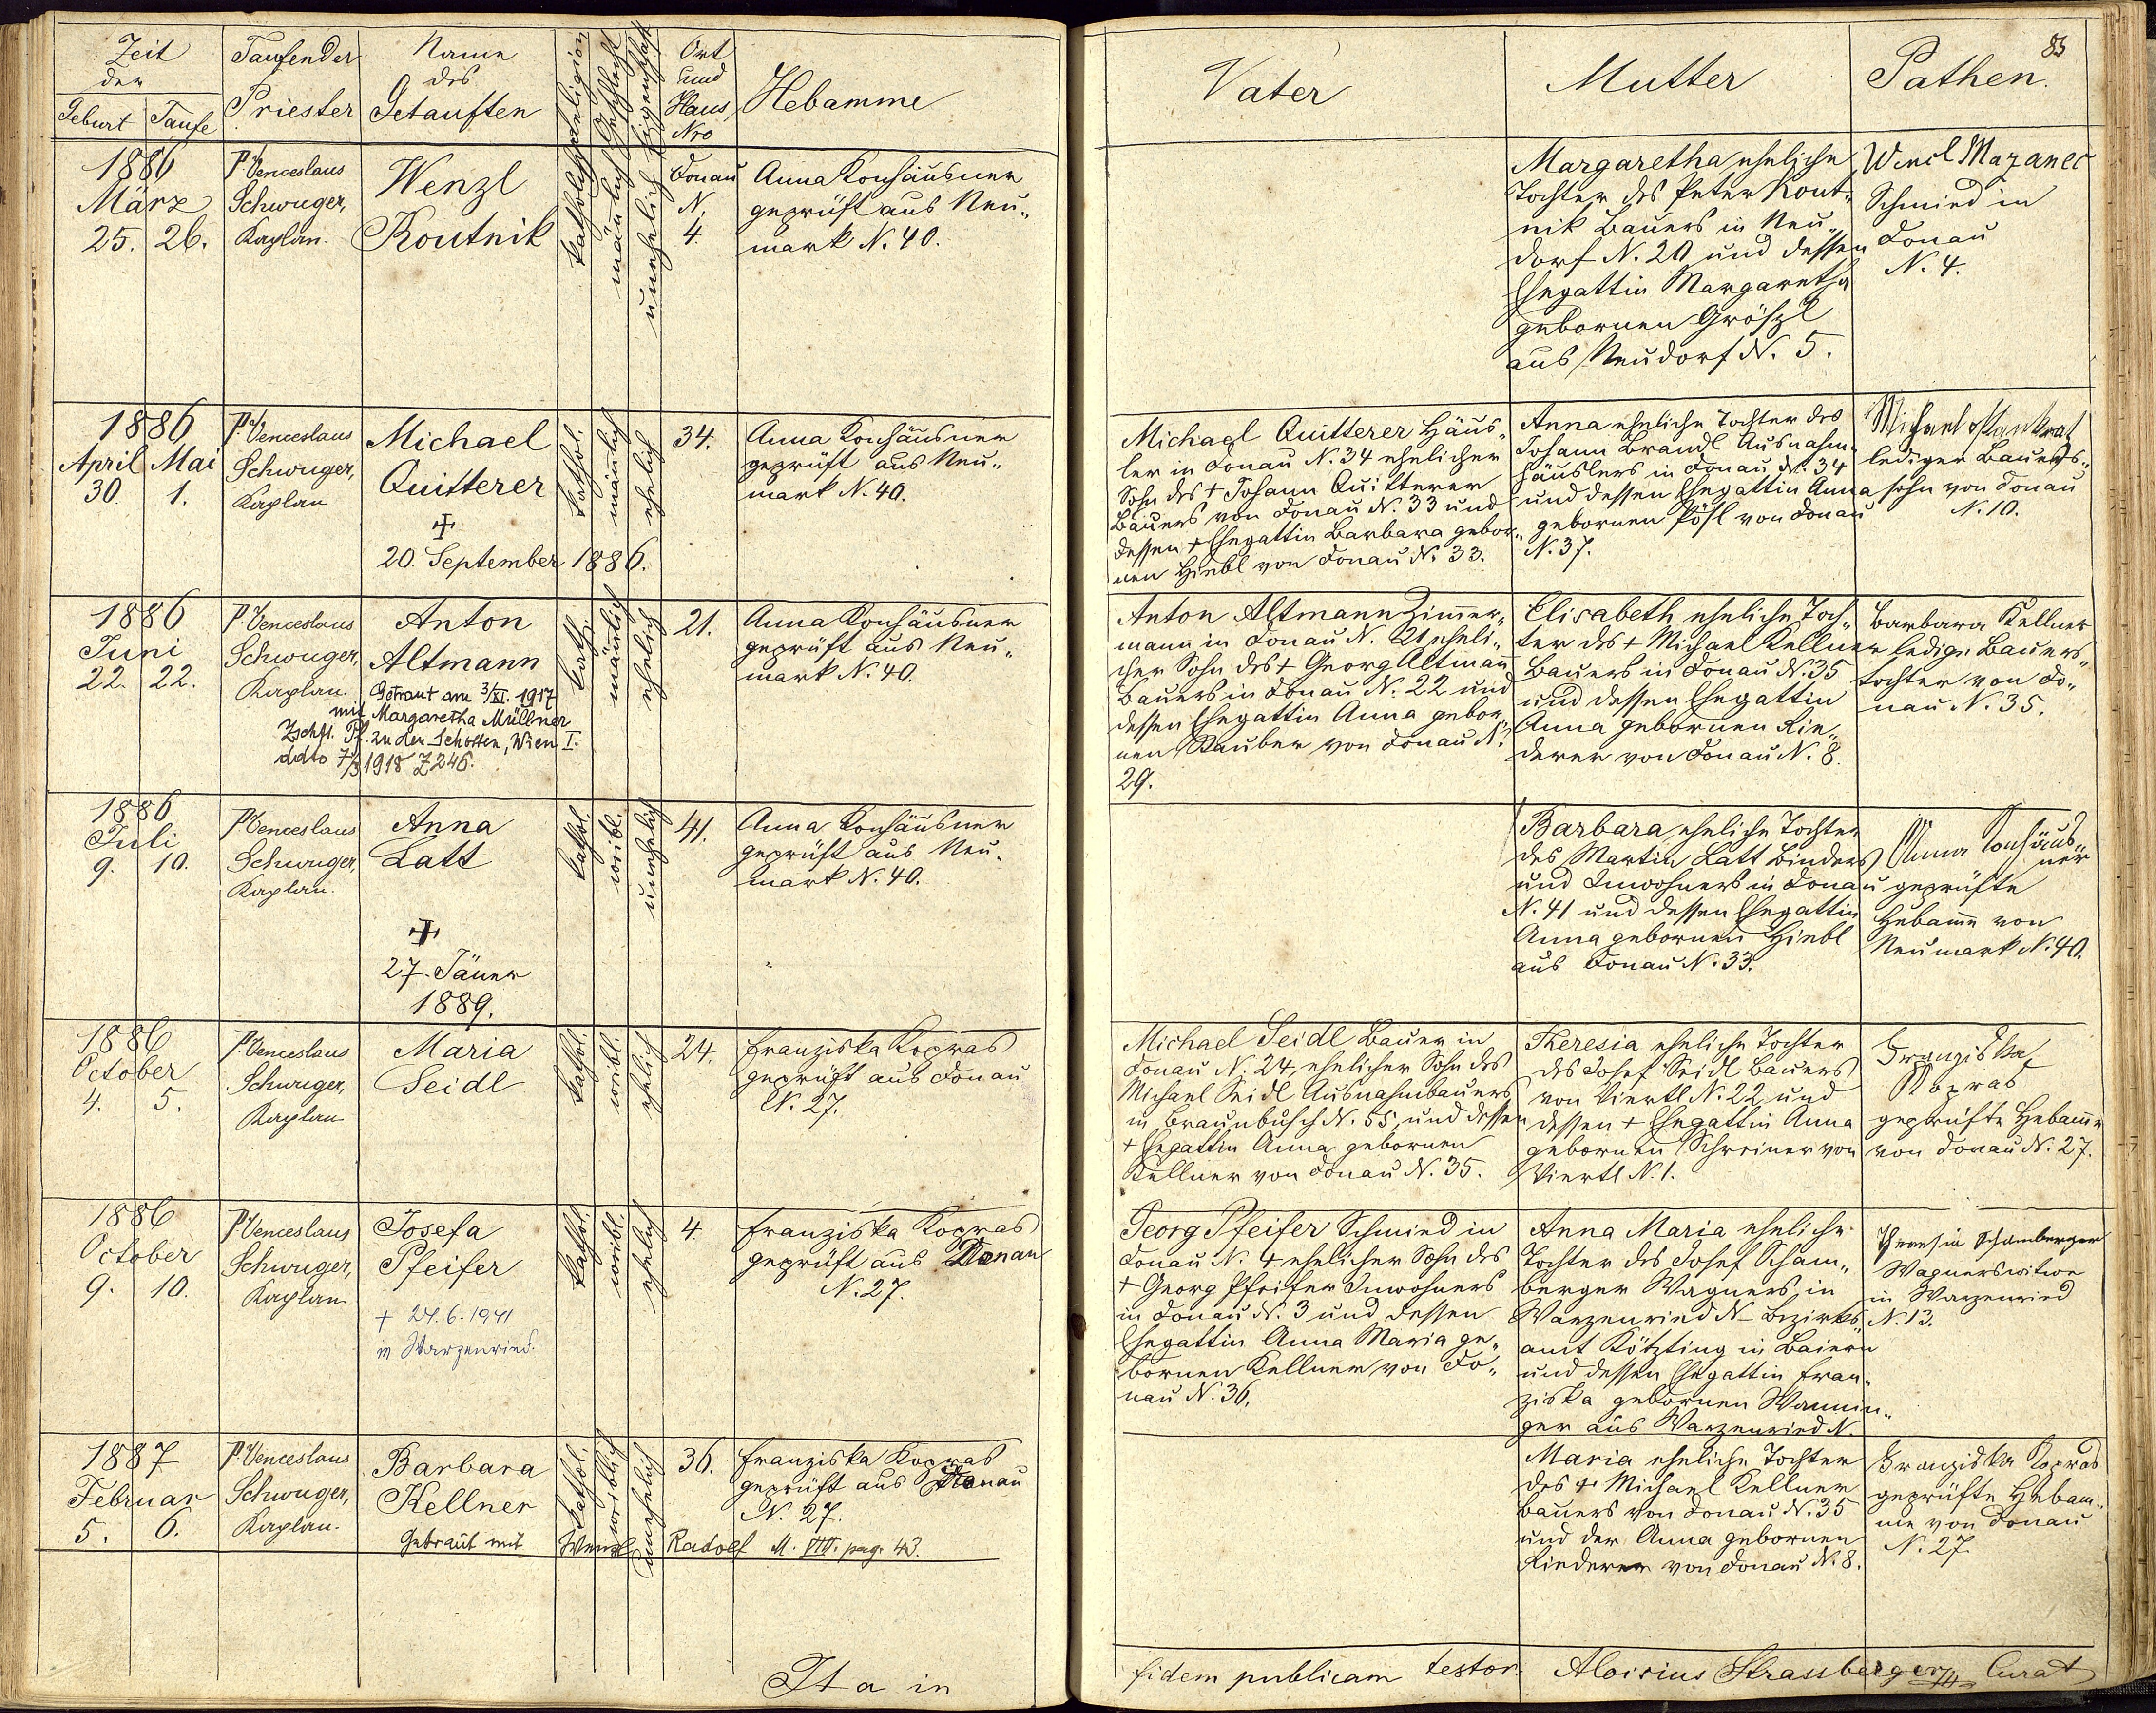 Zeit
der
Geburt Taufe
Taufender
Priester
Name
des
Getauften
Religion
Geschlecht
Ort
und
Haus
Nro
Hebamme
1886
März
25. 26.
P. Venceslaus
Schwuger,
Kaplan.
Wenzl
Koutnik
katholisch
männlich
unehelich
Donau
N.
4.
Anna Konhäusner
geprüft aus Neu„
mark N. 40.
1886
April Mai
30. 1.
P. Venceslaus
Schwuger,
Kaplan
Michael
Quitterer
+
20. September 1886.
kathol.
männlich
ehelich
34.
Anna Konhäusner
geprüft aus Neu„
mark N. 40.
1886
Juni
22. 22.
P. Venceslaus
Schwuger,
Kaplan.
Anton
Altmann
Getraut am 3/XI. 1917
mit Margaretha Müllner
Zschft. Pf. zu den Schotten, Wien I.
ddto 7/3 1918 Z 246.
kath.
männlich
ehelich
21.
Anna Konhäusner
geprüft aus Neu„
mark N. 40.
1886
Juli
9. 10.
P. Venceslaus
Schwuger,
Kaplan.
Anna
Latt
+
27. Jäner
1889.
kathol.
weibl.
unehelich
41.
Anna Konhäusner
geprüft aus Neu„
mark N. 40.
1886
October
4. 5.
P. Venceslaus
Schwuger,
Kaplan
Maria
Seidl
kathol.
weibl.
ehelich
24.
Franziska Kopras
geprüft aus Donau
N. 27.
1886
October
9. 10.
P. Venceslaus
Schwuger,
Kaplan
Josefa
Pfeifer
+ 24.6.1941
in Warzenried.
kathol.
weibl.
ehelich
4.
Franziska Kopras
geprüft aus Donau
N. 27.
1887
Februar
5. 6.
P. Venceslaus
Schwuger,
Kaplan.
Barbara
Kellner
kathol.
weiblich
unehelich
36.
Franziska Kopras
geprüft aus Donau
N. 27.
Getraut mit Wenzl Radolf M. VIII. pag. 43.
Ita in
83
Vater
Mutter
Pathen.
Margaretha eheliche
Tochter des Peter Kout„
nik Bauers in Neu„
dorf N. 20 und dessen
Ehegattin Margaretha
gebornen Größl
aus Neudorf N. 5.
Wencl Mazanec
Schmied in
Donau
N. 4.
Michael Quitterer Häus„
ler in Donau N. 34 ehelicher
Sohn des + Johann Quitterer
Bauers von Donau N. 33 und
dessen + Ehegattin Barbara gebor„
nen Hiebl von Donau N. 33.
Anna eheliche Tochter des
Johann Brandl Ausnahm„
häuslers in Donau N. 34
und dessen Ehegattin Anna
gebornen Pösl von Donau
N. 37.
Michael Pankrat
lediger Bauers„
sohn von Donau
N. 10.
Anton Altmann Zimmer„
mann in Donau N. 21 eheli„
cher Sohn des + Georg Altmann
Bauers in Donau N. 22 und
dessen Ehegattin Anna gebor„
nen Stauber von Donau N.
29.
Elisabeth eheliche Toch„
ter des + Michael Kellner
Bauers in Donau N. 35
und dessen Ehegattin
Anna gebornen Rie„
derer von Donau N. 8.
Barbara Kellner
ledige Bauers„
tochter von Do„
nau N. 35.
Barbara eheliche Tochter
des Martin Latt Binders
und Inwohners in Donau
N. 41 und dessen Ehegattin
Anna gebornen Hiebl
aus Donau N. 33.
Anna Konhäus„
ner
geprüfte
Hebamme von
Neumark N. 40.
Michael Seidl Bauer in
Donau N. 24, ehelicher Sohn des
Michael Seidl Ausnahmbauers
in Braunbusch N. 55, und dessen
+ Ehegattin Anna gebornen
Kellner von Donau N. 35.
Theresia eheliche Tochter
des Josef Seidl Bauers
von Viertl N. 22 und
dessen + Ehegattin Anna
gebornen Schreiner von
Viertl N. 1.
Franziska
Kopras
geprüfte Hebamme
von Donau N. 27.
Georg Pfeifer Schmied in
Donau N. 4 ehelicher Sohn des
+ Georg Pfeifer Inwohners
in Donau N. 3 und dessen
Ehegattin Anna Maria ge„
bornen Kellner von Do„
nau N. 36.
Anna Maria eheliche
Tochter des Josef Scham„
berger Wagners in
Warzenried N – Bezirks„
amt Kötzting in Baiern
und dessen Ehegattin Fran„
ziska gebornen Wannin„
ger aus Warzenried N.
Theresia Schamberger
Wagnerswitwe
in Warzenried
N. 13.
Maria eheliche Tochter
des + Michael Kellner
Bauers von Donau N. 35
und der Anna gebornen
Riederer von Donau N. 8.
Franziska Kopras
geprüfte Hebam„
me von Donau
N. 27.
fidem publicam testor. Aloisius Strassberger Curat